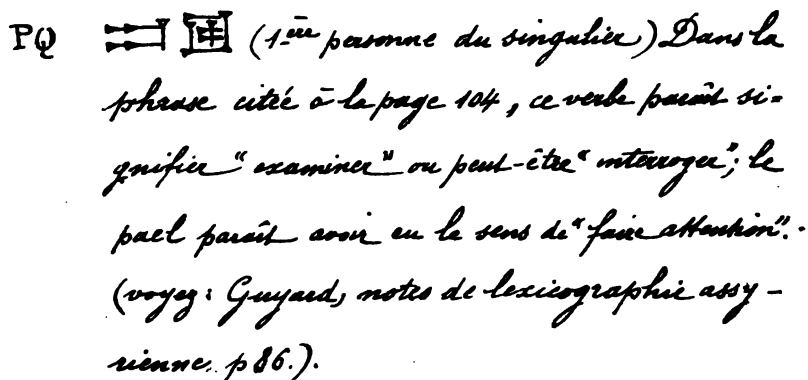 PQ 𒀊𒆥 (1ère personne du singulier) Dans la
phrase citée à la page 104, ce verbe paraît si=
gnifier "examiner" ou peut-être "interroger"; le
pael paraît avoir eu le sens de "faire attention".
(voyez: Guyard, notes de lexicographie assy-
rienne. p 86.).